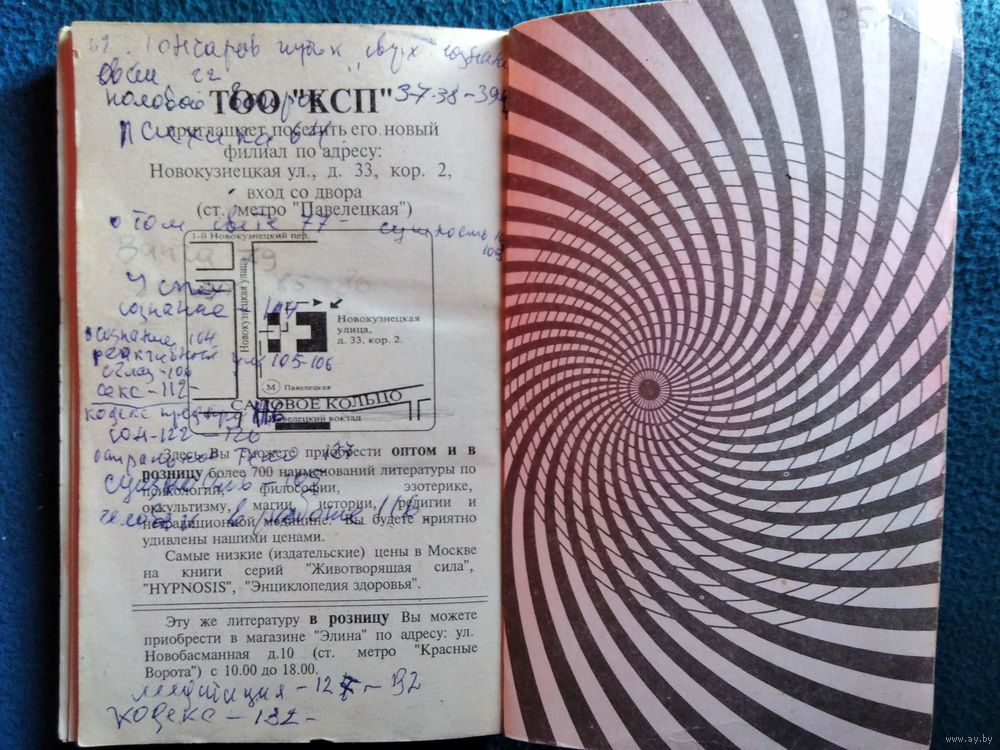 59. Гончаров
половой
ТОО "КСП" 37-38-39
приглашает посетить его новый
психика 64
филиал по адресу:
Новокузнецкая ул., д. 33, кор. 2,
вход со двора
(ст. метро "Павелецкая")
о том свете 77 - сущность
1-й Новокузнецкий пер.
Ванга 79
Новокузнецкая улица
сознание - 104
Новокузнецкая
улица,
д. 33, кор. 2.
сознание 104
реактивный ум 105-106
сглаз-106
М Павелецкая
секс-112-
САДОВОЕ КОЛЬЦО
кодекс
Павелецкий вокзал
сон-122-126
Здесь Вы сможете приобрести оптом и в
розницу более 700 наименований литературы по
психологии, философии, эзотерике,
оккультизму, магии, истории, религии и
нетрадиционной медицине. Вы будете приятно
удивлены нашими ценами.
Самые низкие (издательские) цены в Москве
на книги серий "Животворящая сила",
"HYPNOSIS", "Энциклопедия здоровья".
Эту же литературу в розницу Вы можете
приобрести в магазине "Элина" по адресу: ул.
Новобасманная д.10 (ст. метро "Красные
Ворота") с 10.00 до 18.00.
медитация - 127-132
кодекс - 132-
www.ay.by